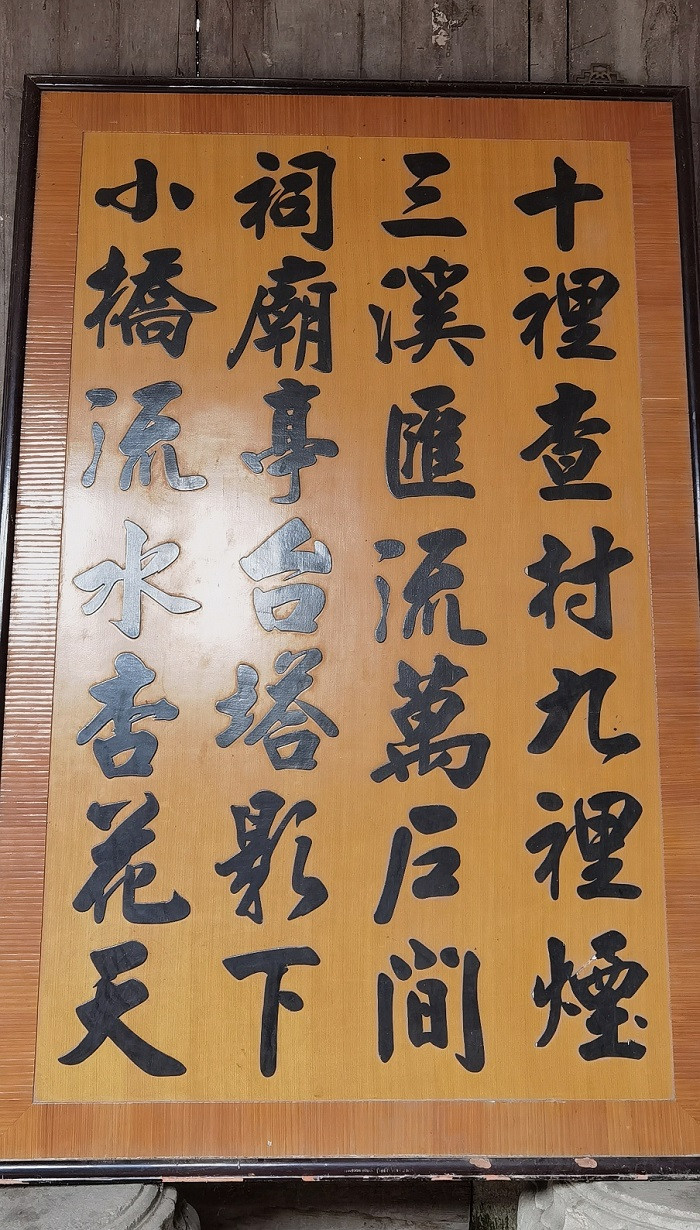 十裡查村九裡煙
三溪匯流萬户間
祠廟亭台塔影下
小橋流水杏花天